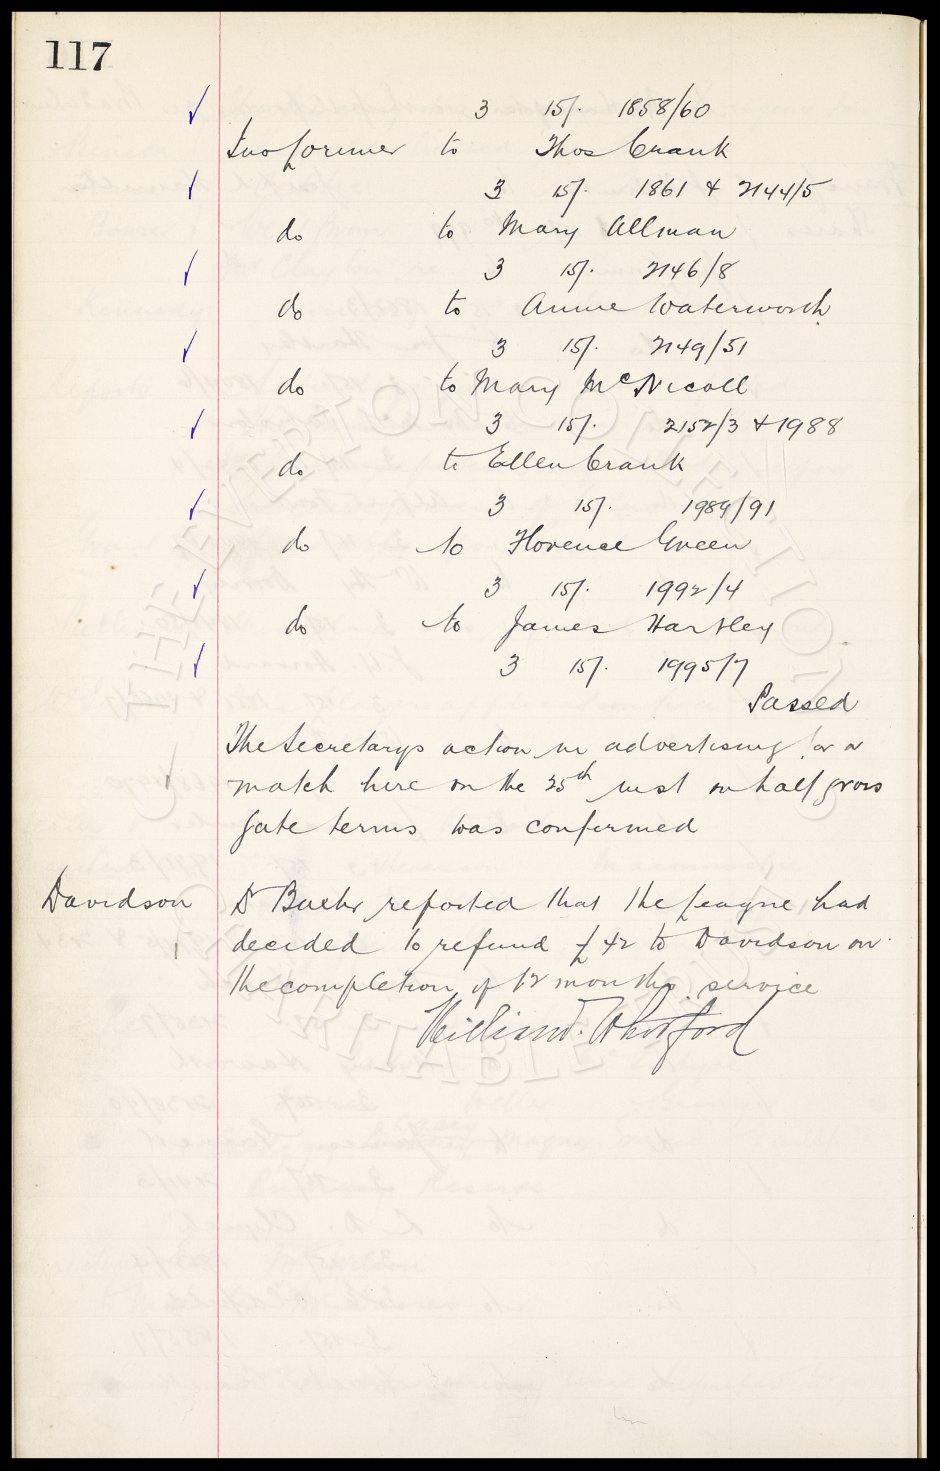 117
3 15/. 1858/60
to Thos Crank
3 15/. 1861 & 2144/5
do to Mary Allman
3 15/. 2146/8
do to Annie Waterworth
3 15/. 2149/51
do to Mary McNicoll
3 15/. 2152/3 & 1988
do to Ellen Crank
3 15/. 1989/91
do to Florence Green
3 15/. 1992/4
do to James Hartley
3 15/. 1995/7
Passed
The Secretarys action in advertising for a
match here on the 25th inst on half gross
gate terms was confirmed
Davidson Dr Baxter reported that the League had
decided to refund £42 to Davidson on
the completion of 12 months service
THE EVERTON COLLECTION
CHARITABLE TRUST